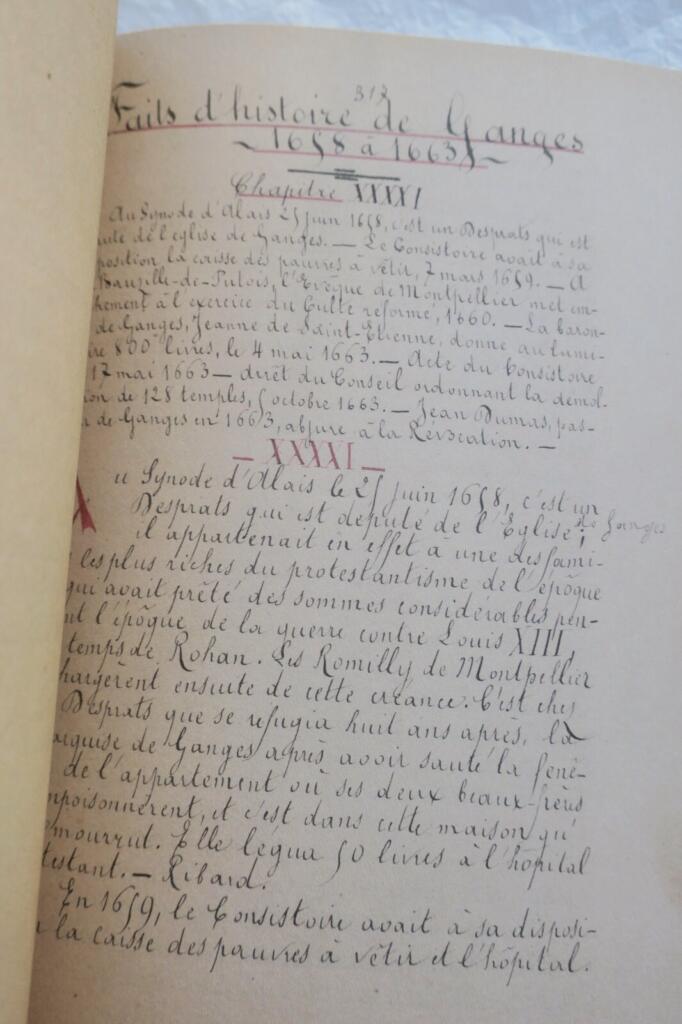 317
Faits d'histoire de Ganges
~ 1658 à 1663 ~
Chapitre XXXXI
Au Synode d'Alais 25 juin 1658, c'est un Desprats qui est
uté de l'église de Ganges. — Le Consistoire avait à sa
position la caisse des pauvres à vêtir, 7 mars 1659. — A
Bauzille-de-Putois, l'Evêque de Montpellier met em-
hement à l'exercice du Culte réformé, 1660. — La baron-
de Ganges, Jeanne de Saint-Etienne, donne au lumi-
ire 800 livres, le 4 mai 1663. — Acte du Consistoire
17 mai 1663 — arrêt du Conseil ordonnant la démol-
ion de 128 temples, 5 octobre 1663. — Jean Dumas, pas-
r de Ganges en 1663, abjure à la Révocation. —
— XXXXI —
Au Synode d'Alais le 25 juin 1658, c'est un
Desprats qui est député de l'Eglise; de Ganges
il appartenait en effet à une des fami-
les plus riches du protestantisme de l'époque
qui avait prêté des sommes considérables pen-
nt l'époque de la guerre contre Louis XIII,
temps de Rohan. Les Romilly de Montpellier
hargèrent ensuite de cette créance. C'est chez
Desprats que se refugia huit ans après, la
arquise de Ganges après avoir sauté la fenê-
de l'appartement où ses deux beaux-frères
mpoisonnèrent, et c'est dans cette maison qu'
mourrut. Elle légua 50 livres à l'hôpital
testant. — Ribard.
En 1659, le Consistoire avait à sa disposi-
la caisse des pauvres à vêtir et l'hôpital.